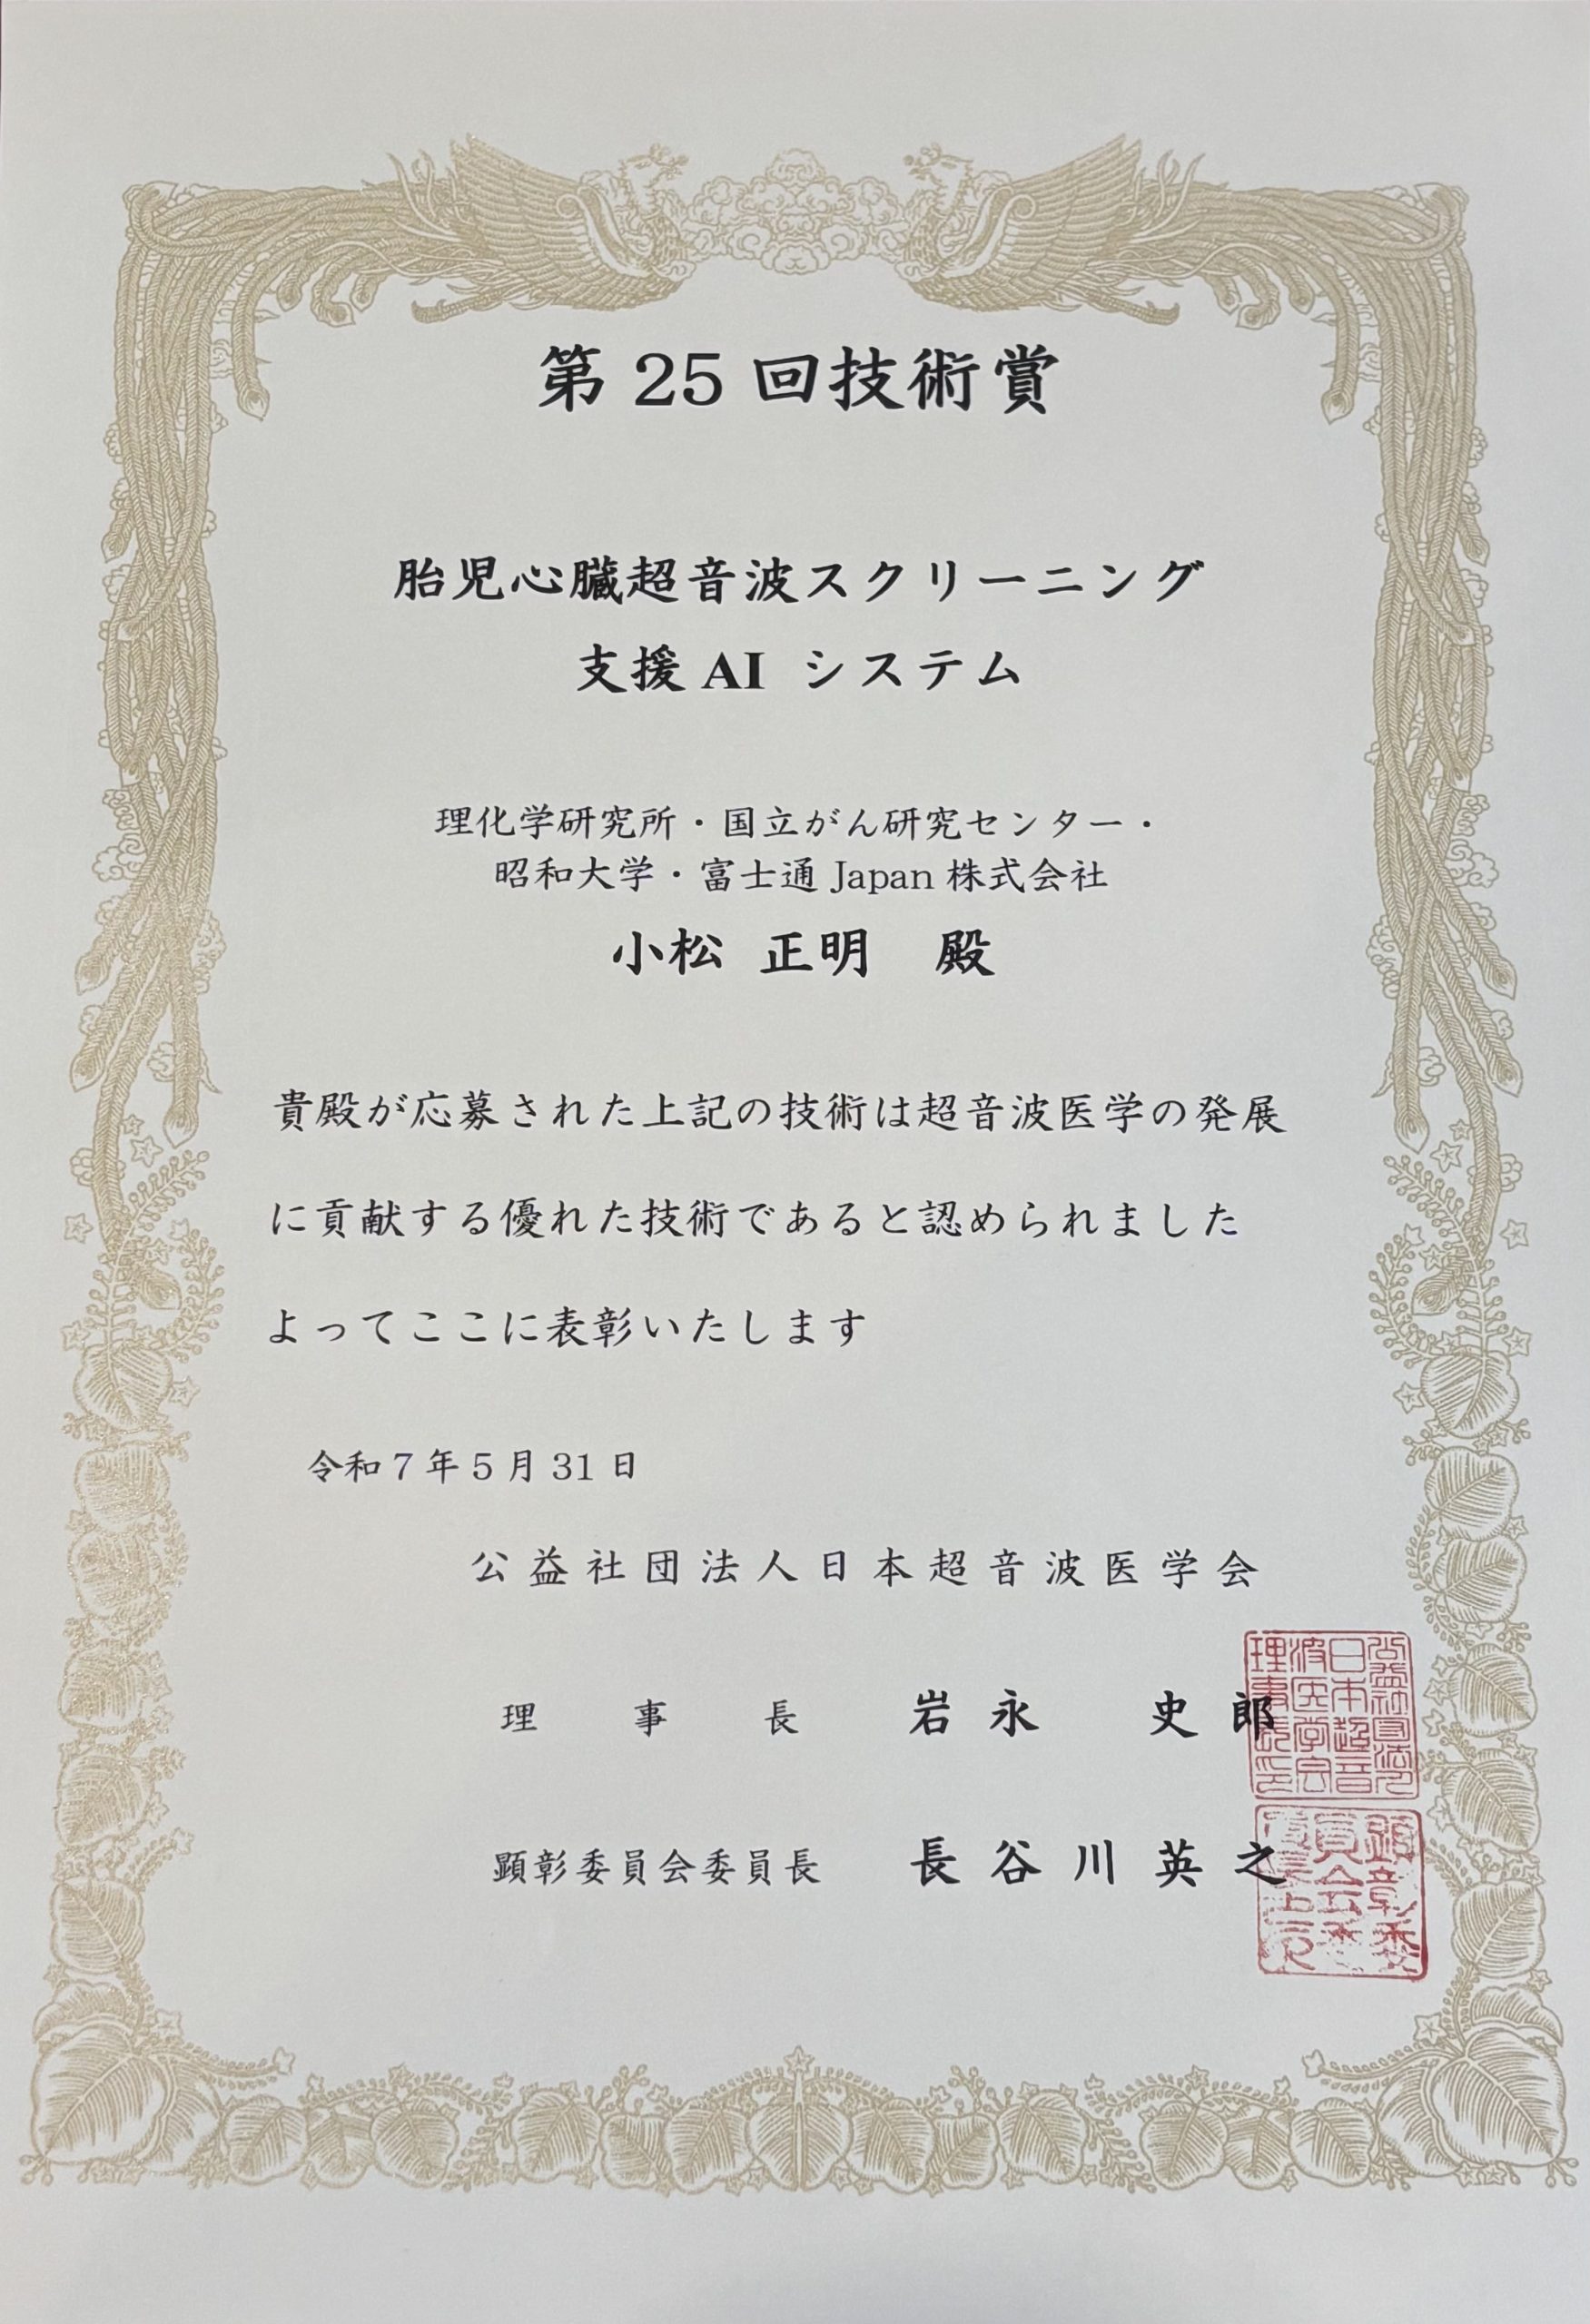 第 25 回技術賞
胎児心臓超音波スクリーニング
支援 AI システム
理化学研究所・国立がん研究センター・
昭和大学・富士通 Japan 株式会社
小松 正明 殿
貴殿が応募された上記の技術は超音波医学の発展
に貢献する優れた技術であると認められました
よってここに表彰いたします
令和 7 年 5 月 31 日
公益社団法人日本超音波医学会
理事長 岩永 史郎
顕彰委員会委員長 長谷川英之
公益社団法人
日本超音
波医学会
理事長印
顕彰委
員会委